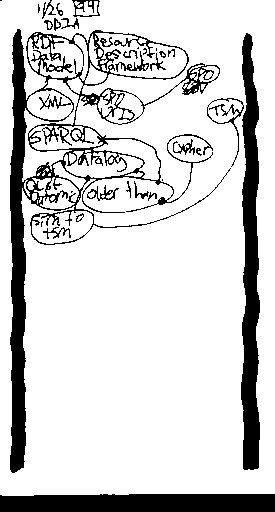 1/26
DDIA
RDF
Data
Model
Resource
Description
Framework
XML
SPO
TSM
SPARQL
Datalog
Cypher
Datomic
older than
sim to
tsm